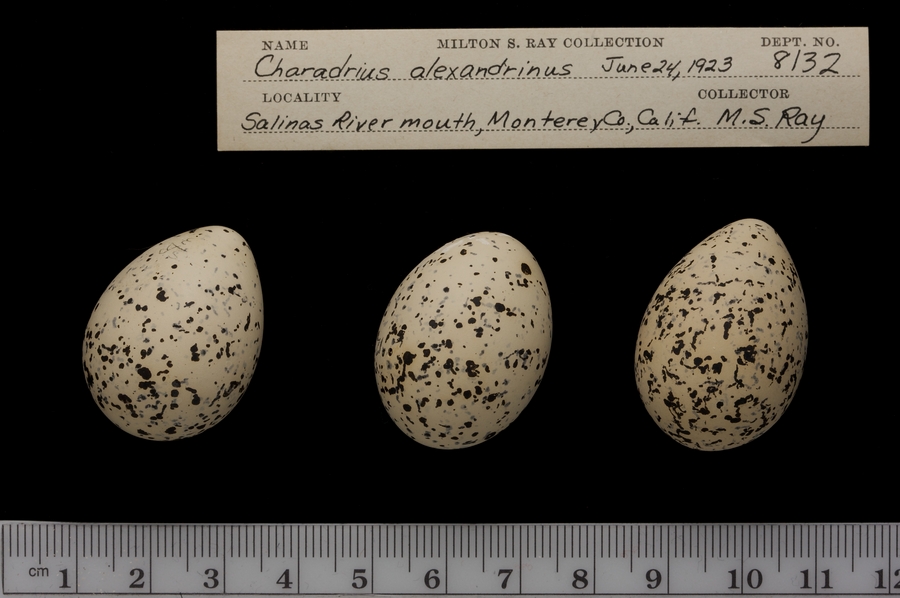 NAME MILTON S. RAY COLLECTION DEPT. NO.
Charadrius alexandrinus June 24, 1923 8132
LOCALITY COLLECTOR
Salinas River mouth, Monterey Co., Calif. M.S. Ray
cm 1 2 3 4 5 6 7 8 9 10 11 12